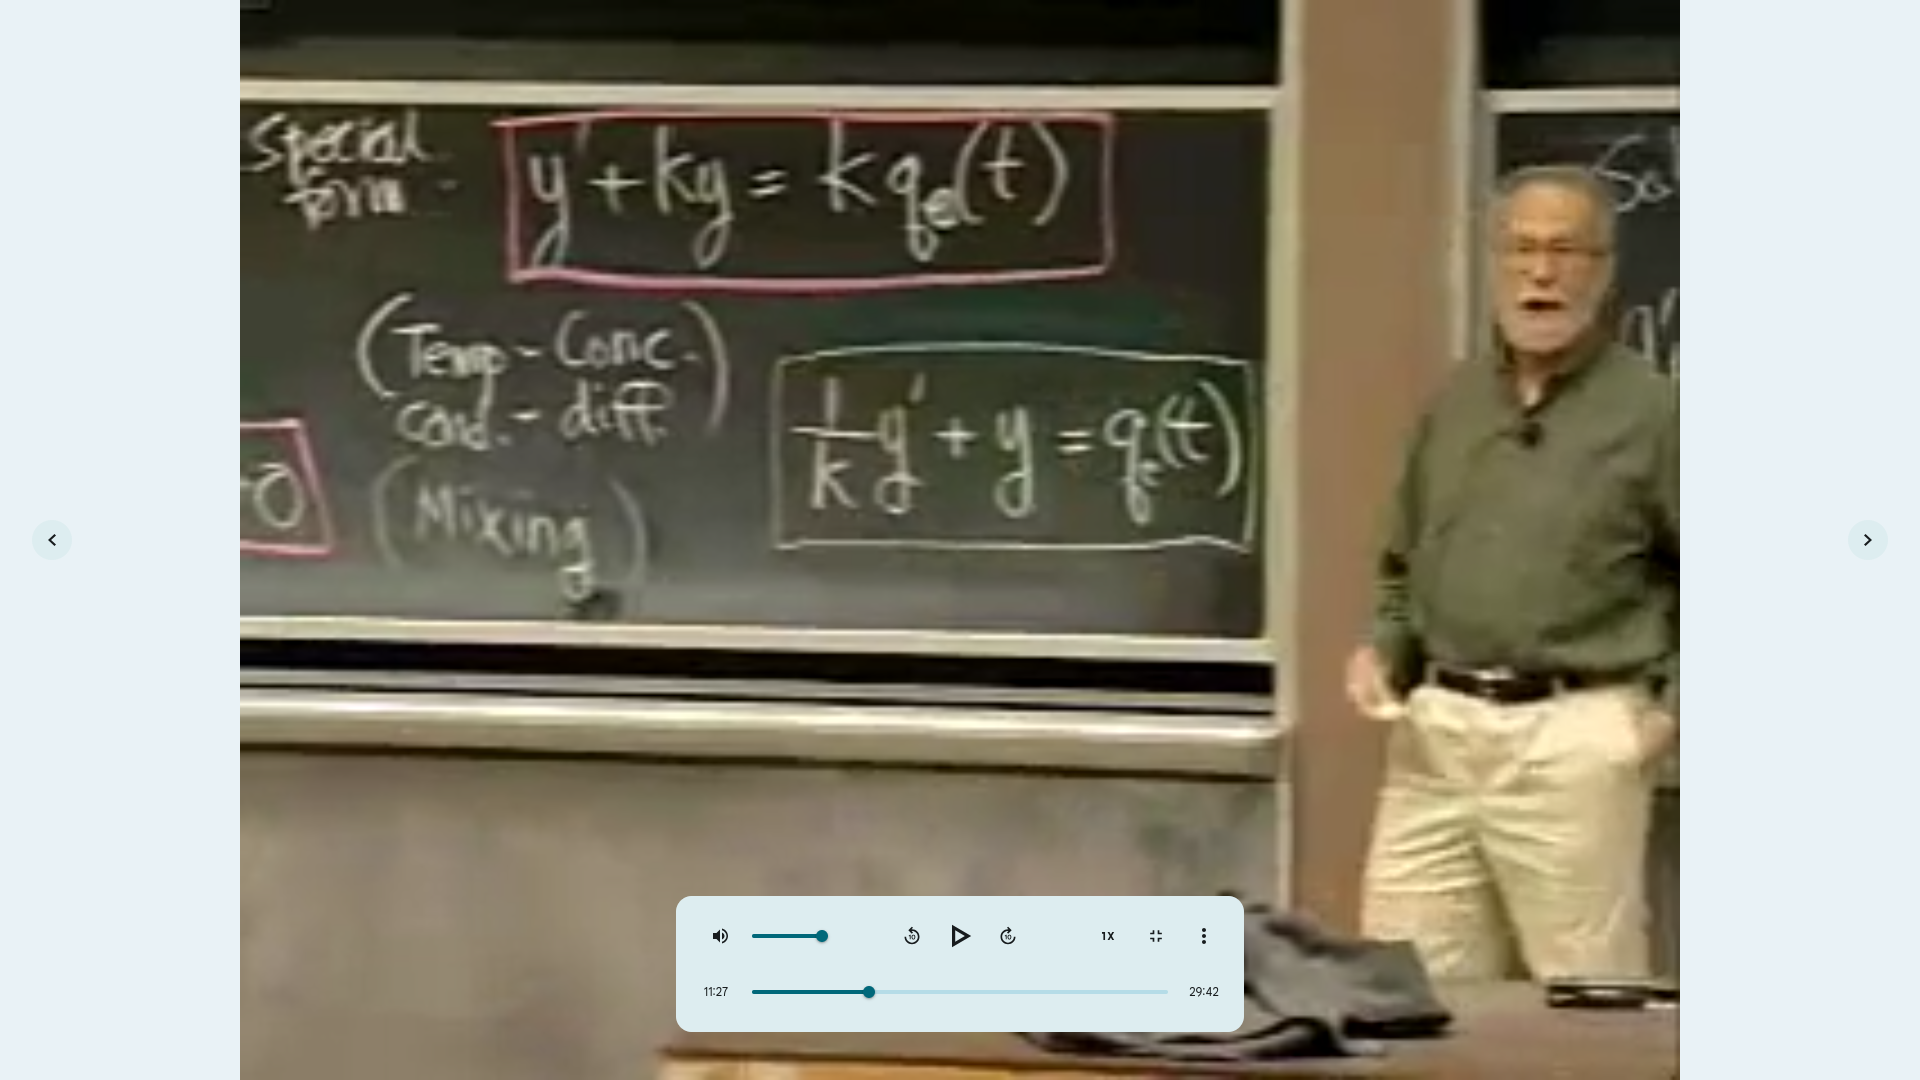 Special
form -
y' + ky = k qe(t)
(Temp - Conc.
cond. - diff.)
(Mixing)
1/k y' + y = qe(t)
a
Sol
q'
1X
11:27
29:42